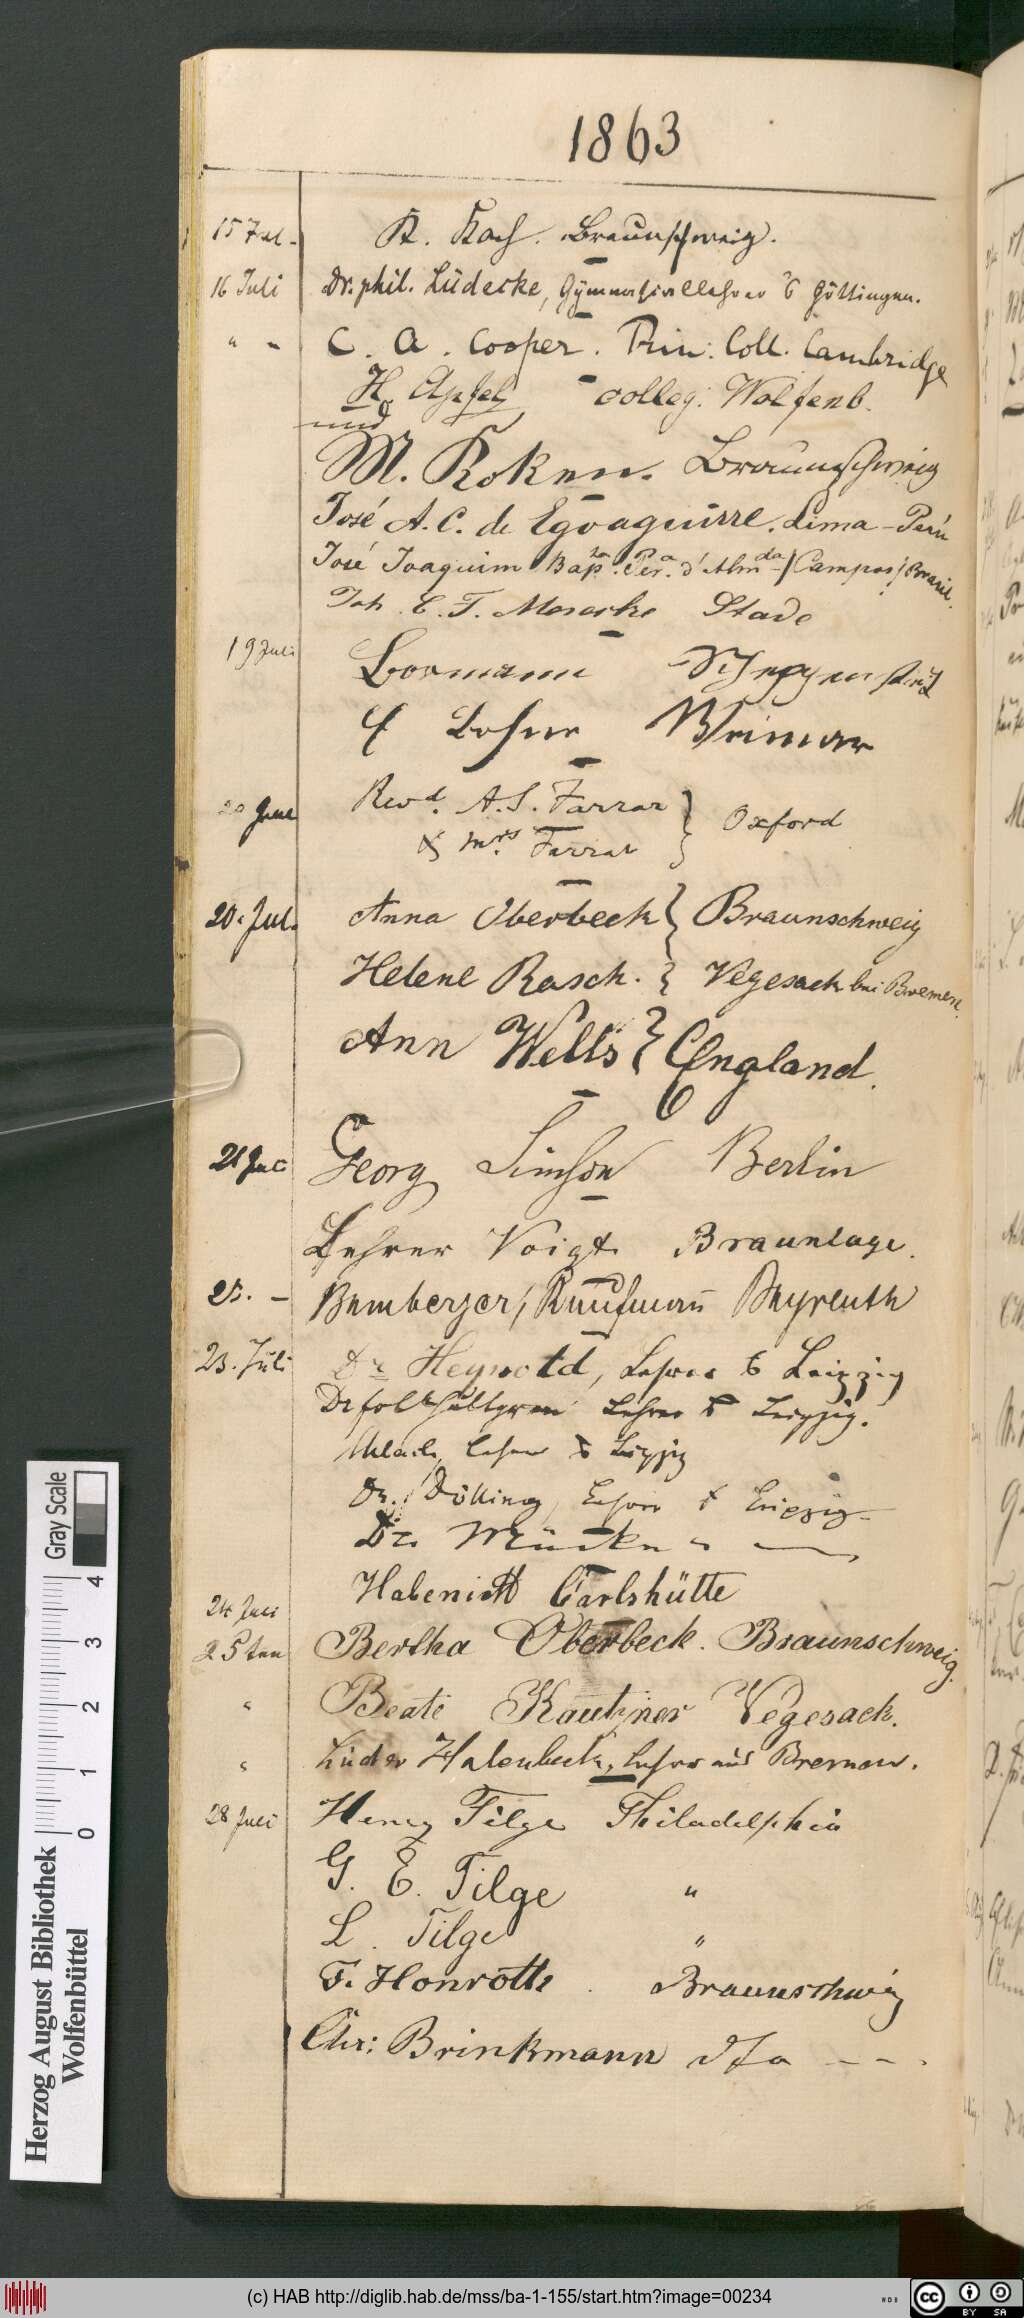 1863
15 Jul. K. Koch. Braunschweig.
16 Juli Dr. phil. Lüdecke, Gymnasiallehrer a Göttingen.
" - C. A. Cooper. Trin: Coll. Cambridge
H. Apfel colleg: Wolfenb.
und
M. Roken. Braunschweig
José A. C. de Egoaguirre. Lima - Perú
José Joaquim Bap.ta Per.a d'Alm.da / Campos / Brasil.
Joh. C. F. Stade
19 Juli Bormann Schoppenstedt
Weimar
20 June Revd. A. S. Farrar } Oxford
& Mrs. Farrar
20. Jul. Anna Oberbeck } Braunschweig
Helene Rasch. } Vegesack bei Bremen.
Ann Wells } England.
21 Juli Georg Simson Berlin
Lehrer Voigt Braunlage.
23. - Bamberger, Kaufmann Bayreuth
23. Juli Dr. Heynold, Lehrer a Leipzig
Lehrer a Leipzig.
Lehrer a Leipzig
Dr. Dölling, Lehrer a Leipzig
Dr. Mücke " —
Habenicht Carlshütte
24 Juli
25ten Bertha Oberbeck. Braunschweig.
" Beate Vegesack.
" Lüder Halenbeck, Lehrer aus Bremen.
28 Juli Henry Tilge Philadelphia
G. E. Tilge "
L. Tilge "
F. Honroth. Braunschweig
Chr: Brinkmann dto - - .
Gray Scale
0 1 2 3 4
Herzog August Bibliothek
Wolfenbüttel
(c) HAB http://diglib.hab.de/mss/ba-1-155/start.htm?image=00234
WDB
cc BY SA